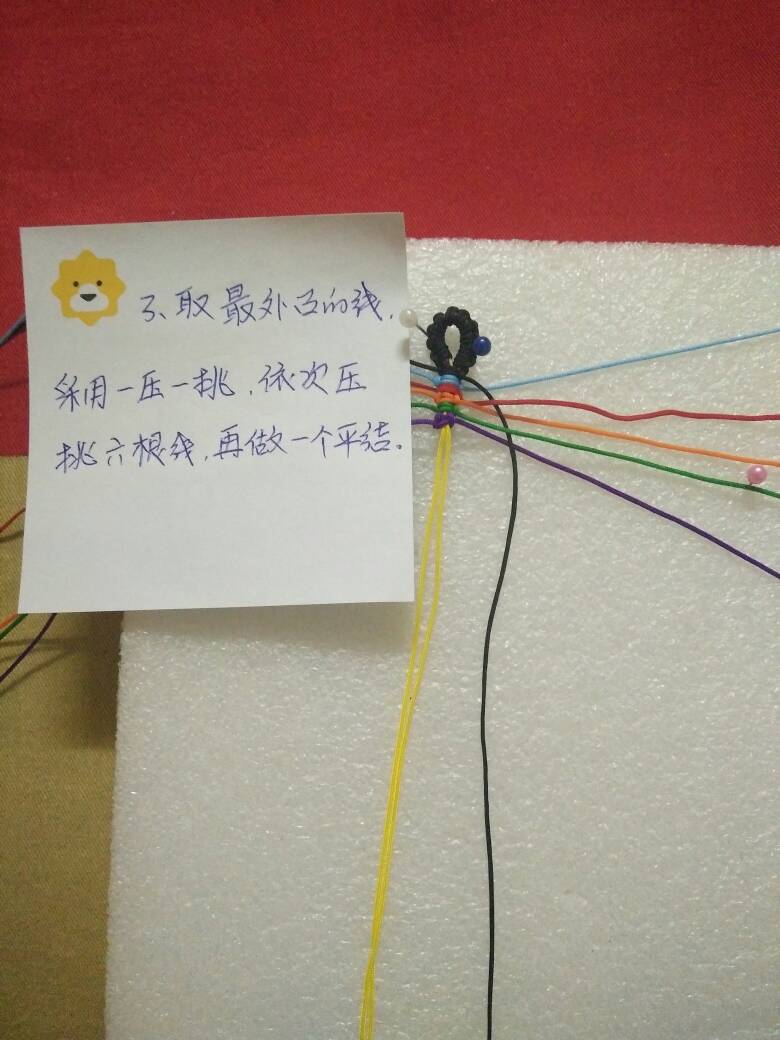 3、取最外凸的线,
采用一压一挑,依次压
挑六根线,再做一个平结.